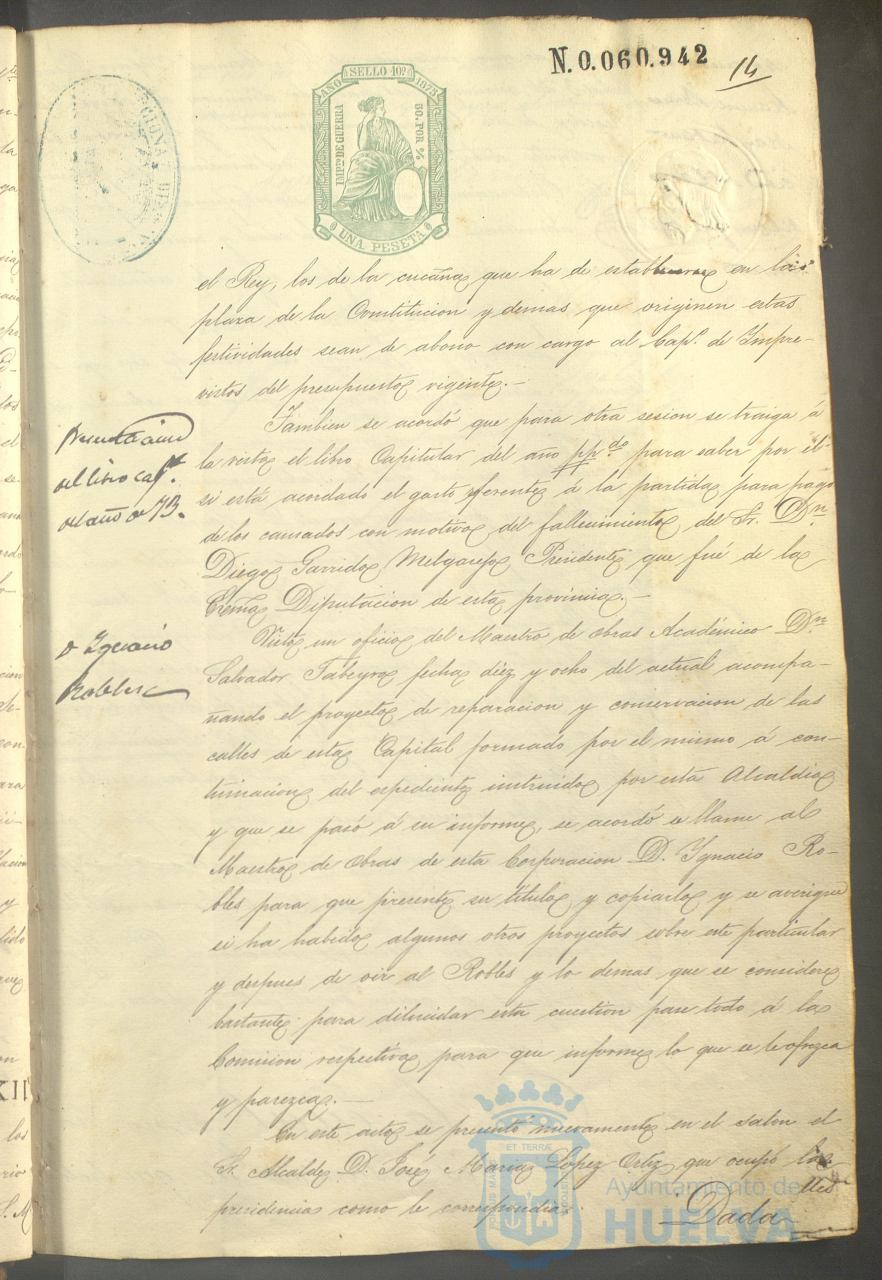 N.0.060.942
14
AÑO SELLO 10º 1875
IMPTO DE GUERRA
50. POR %
UNA PESETA
el Rey, los de la cucaña que ha de establecerse en la
plaza de la Constitucion y demas que originen estas
festividades sean de abono con cargo al Capº. de Impre-
vistos del presupuesto vigente.-
Tambien se acordó que para otra sesion se traiga á
la vista el libro Capitular del año pp.do para saber por él
si está acordado el gasto referente á la partida para pago
de los causados con motivo del fallecimiento del Sr. Dn
Diego Garrido Melgarejo Presidente que fué de la
Excma Diputacion de esta provincia.-
del libro capr.
del año de 73.
Visto un oficio del Maestro de Obras Académico Dn
Salvador Tabeyro fecha diez y ocho del actual acompa-
ñando el proyecto de reparacion y conservacion de las
calles de esta Capital formado por el mismo á con-
tinuacion del espediente instruido por esta Alcaldia
y que se pasó á su informe, se acordó se llame al
Maestro de Obras de esta Corporacion D. Ygnacio Ro-
bles para que presente su título y copiarlo y se averigue
si ha habido algunos otros proyectos sobre este particular
y despues de oir al Robles y lo demas que se considere
bastante para dilucidar esta cuestion pase todo á la
Comision respectiva para que informe lo que se le ofrezca
y parezca.-
D Ygnacio
Robles
En este acto se presentó nuevamente en el salon el
Sr. Alcalde D. José Maria Lopez Ortiz que ocupó la
presidencia como le correspondia.
Dada
Ayuntamiento de
HUELVA
ET TERRÆ